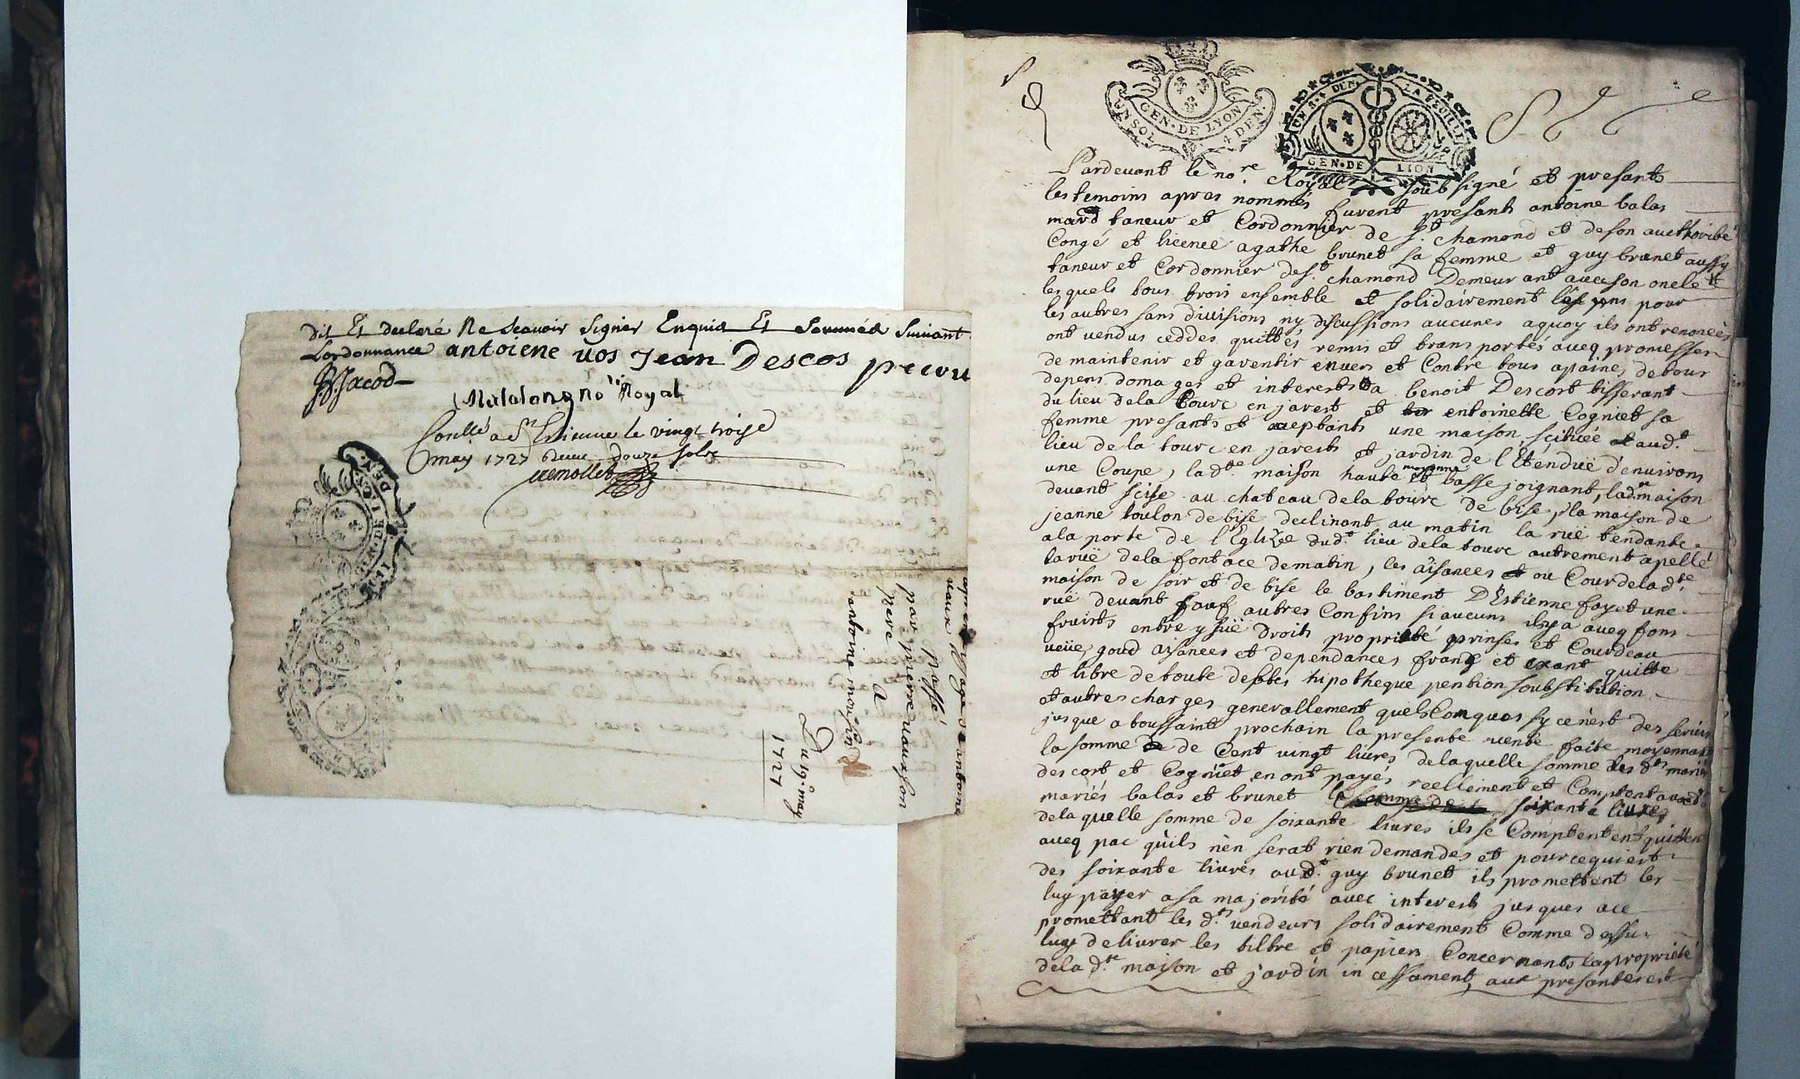 dit Et declaré Ne Scauoir Signer Enquis Et Sommés Suiuant
Lordonnance antoiene vos Jean Descos
Jacod
no.re Royal
Conllé a St Estienne le vingt troise
may 1727 Receu douze sols
Passé
par pierre
pere
A
antoine
Du 19: may
1727
UN SOL 4 DEN.
GEN. DE LYON
LA FEUILLE
GEN. DE LION
Pardeuant le no.re Royal soubsigné et presants
les temoins apres nommés furent presants antoine balas
mard taneur et Cordonnier de St. chamond et de son aucthorité
Congé et licence agathe brunet sa femme et guy brunet aussy
taneur et Cordonnier de St. chamond Demeurant aueq son oncle
lesquels tous trois ensemble et solidairement les uns pour
les autres sans diuisions ny discussions aucunes aquoy ils ont renoncés
ont vendus ceddes quittés remis et transportés aueq promesses
de maintenir et garentir enuers et Contre tous apaine, de tous
depens domages et interests a benoit Descort tisserant
du lieu de la tourc en jarest et entoinette Cogniet sa
femme presants et aceptants une maison scituée aud.t
lieu de la tourc en jarests et jardin de l'Etenduë d'enuirons
une Coupe, la d.te maison haute moyenne et basse joignant, lad. maison
deuant scise au chateau de la tourc de bise, la maison de
jeanne toulon de bise declinant au matin la ruë tendante
a la porte de l'Eglize dud.t lieu de la tourc autrement apellé
la ruë de la font ace de matin, les aisances et ou Cour de la d.te
maison de soir et de bise le bastiment D'Estienne fayet une
ruë deuant sauf autres Confins si aucuns ilsya aueq fons
fruits entrë ysuë droits proprieté prinses et Cour deau
veüe, goud aisances et dependances franq et exant quitte
et libre de toute debtes hipotheque pention soubstitution
et autres charges generallement quelsConques sy ce n'est des seruis
jusque a toussaint prochain la presente vente faite moyennant
la somme de Cent vingt liures de laquelle somme les d.ts mariés
descort et Cogniet en ont payés reellement et Comptent aux d.ts
mariés balas et brunet la somme de soixante liures
de laquelle somme de soixante liures ils se Comptentent quittent
aueq pac qu'ils n'en serat rien demandes et pour ce qui est
des soixante liures aud.t guy brunet ils promettent les
luy payer a sa majorité auec interest jusques a ce
promettant les d.ts vendeurs solidairement Comme dessus
luy deliurer les tiltre et papiers Concernants la proprieté
de la d.te maison et jardin incessament, aux presantes est